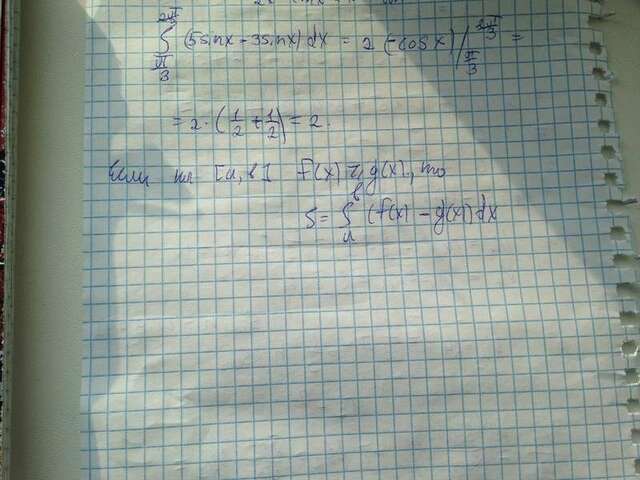 ∫_{π/3}^{2π/3} (5sinx - 3sinx) dx = 2 (-cosx) /_{π/3}^{2π/3} =
= 2 · (1/2 + 1/2) = 2.
Если на [a, b] f(x) ≥ g(x), то
S = ∫_a^b (f(x) - g(x)) dx